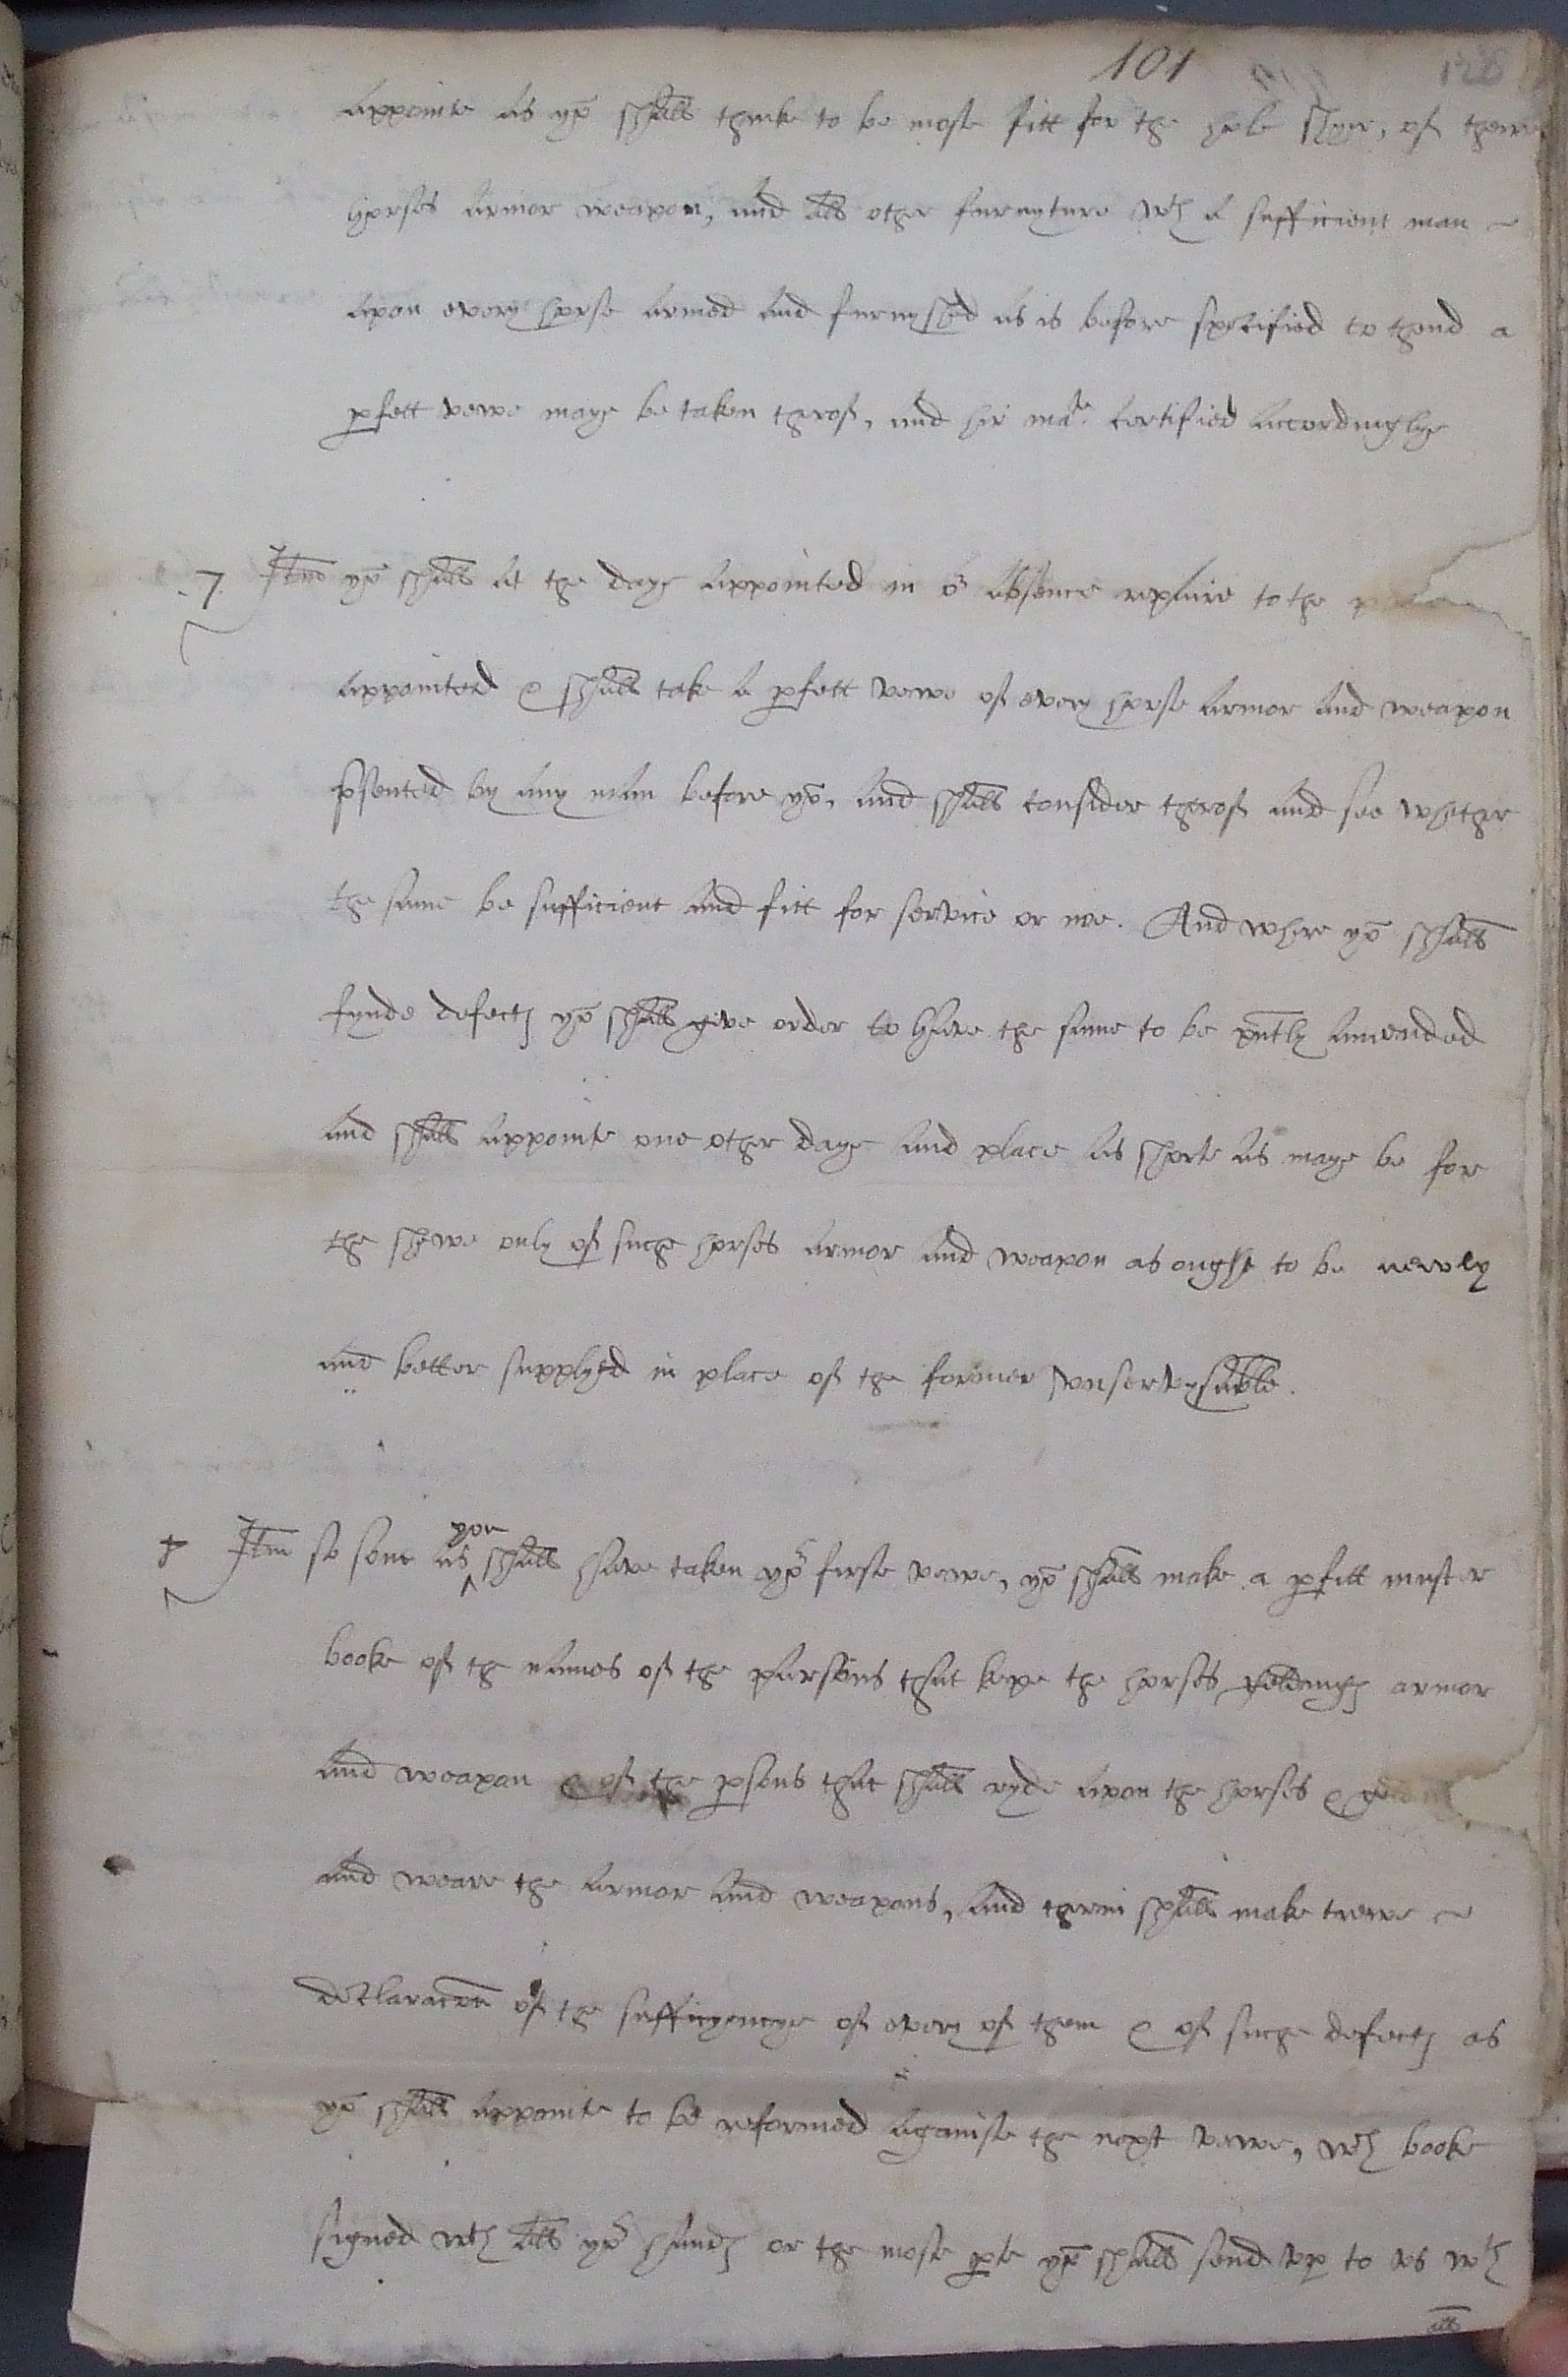 101
appointe as yo shall thinke to be moste fitt for the hole shyer, of theire
horses armor weapon, and all other furnyture wth a sufficient man
upon every horse armed and furnyshed as is before specified to thend a
pfett vewe maye be taken therof, and hir matie certified accordinglye
.7. Itm yo shall at the daye appointed in or absence repaire to the
appointed & shall take a pfett vewe of every horse armor and weapon
psented by any man before yo, and shall consider therof and see whether
the same be sufficient and fitt for service or noe. And where yo shall
fynde defectes yo shall give order to have the same to be pntly amended
and shall appointe one other daye and place as shorte as maye be for
the shewe only of suche horses armor and weapon as ought to be newly
and better supplyed in place of the former vnservysable.
Itm so sone as you shall have taken yor firste vewe, yo shall make a pfitt muster
booke of the names of the parsons that kepe the horses geldinges armor
and weapon & of the psons that shall ryde upon the horses &
and weare the armor and weapons, and therin shall make trewe
declaracon of the sufficyencye of every of them & of suche defectes as
yo shall appointe to be reformed againste the next vewe, wch booke
signed wth all yor handes or the moste pte yo shall send vp to vs wth
all